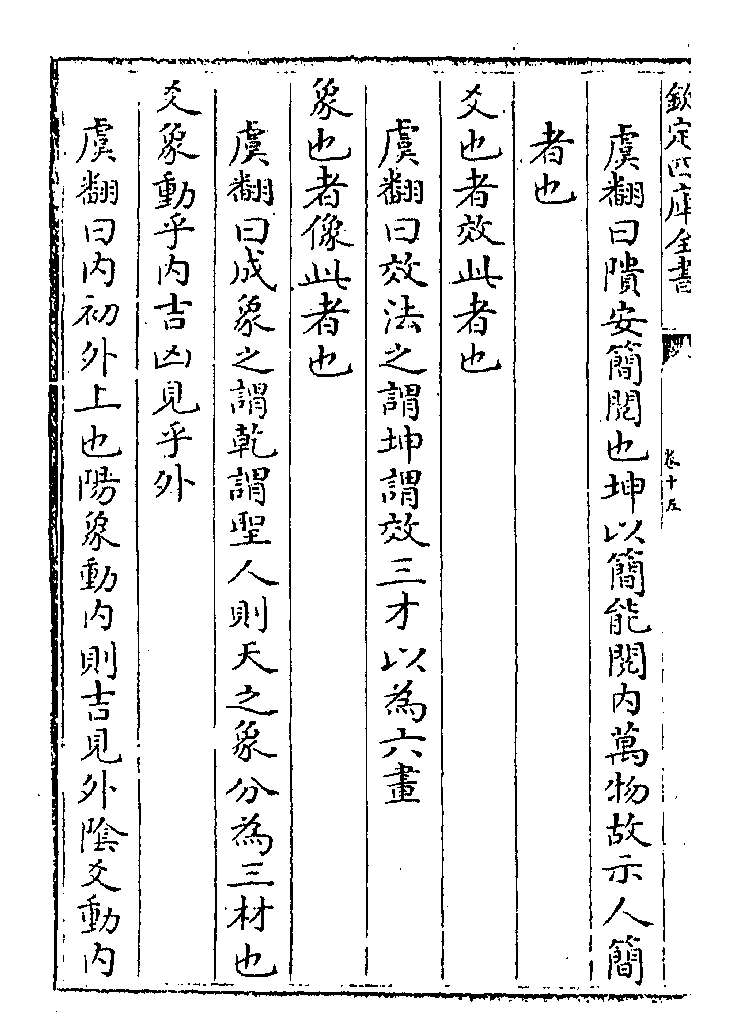 欽定四庫全書
卷十五
虞翻曰隤安簡閱也坤以簡能閱内萬物故示人簡
者也
爻也者效此者也
虞翻曰效法之謂坤謂效三才以為六畫
象也者像此者也
虞翻曰成象之謂乾謂聖人則天之象分為三材也
爻象動乎内吉凶見乎外
虞翻曰内初外上也陽象動内則吉見外陰爻動内